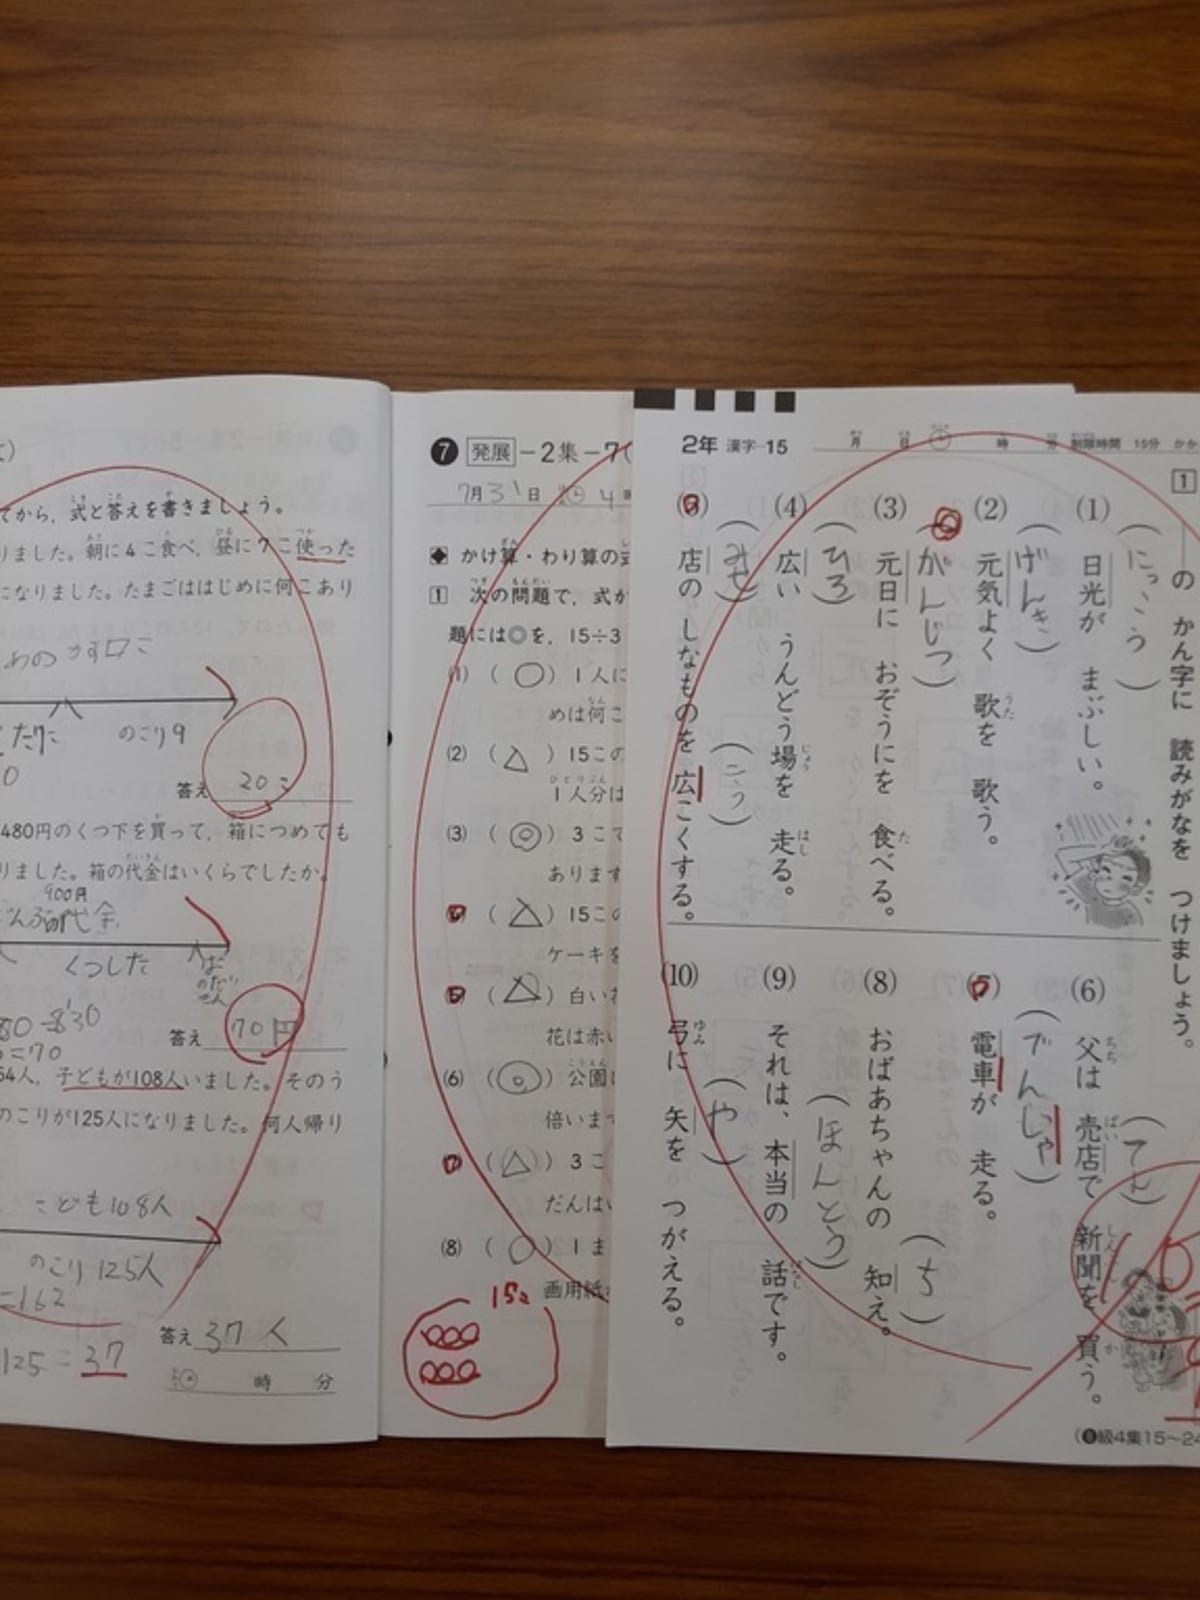 てから、式と答えを書きましょう。
りました。朝に4こ食べ、昼に7こ使った
になりました。たまごははじめに何こあり
のこり9
答え 20こ
480円のくつ下を買って、箱につめても
りました。箱の代金はいくらでしたか。
900円
くつした
答え 70円
=170
64人、子どもが108人いました。そのう
のこりが125人になりました。何人帰り
こども108人
のこり125人
=162
125=37
答え 37人
時 分
7 発展-2集-7
7月31日 4
◆ かけ算・わり算の
1 次の問題で、式が
題には◎を、15÷3
(1) (○) 1人に
めは何こ
(2) (△) 15この
1人分は
(3) (◎) 3こて
あります
(△) 15この
ケーキを
(△) 白い
花は赤い
(6) (◎) 公園
倍います
(△) 3こ
だんはい
(8) (○) 1ま
画用紙
15こ
2年 漢字-15
月 日 時 分 制限時間 15分 かか
1 ――の かん字に 読みがなを つけましょう。
(1) 日光が まぶしい。 (にっこう)
(2) 元気よく 歌を 歌う。 (げんき)
(3) 元日に おぞうにを 食べる。 (がんじつ)
(4) 広い うんどう場を 走る。 (ひろ)
(5) 店の しなものを 広こくする。 (みせ) (こう)
(6) 父は 売店で 新聞を 買う。 (てん)
(7) 電車が 走る。 (でんしゃ)
(8) おばあちゃんの 知え。 (ち)
(9) それは、本当の 話です。 (ほんとう)
(10) 弓に 矢を つがえる。 (や)
(8級4集15～24